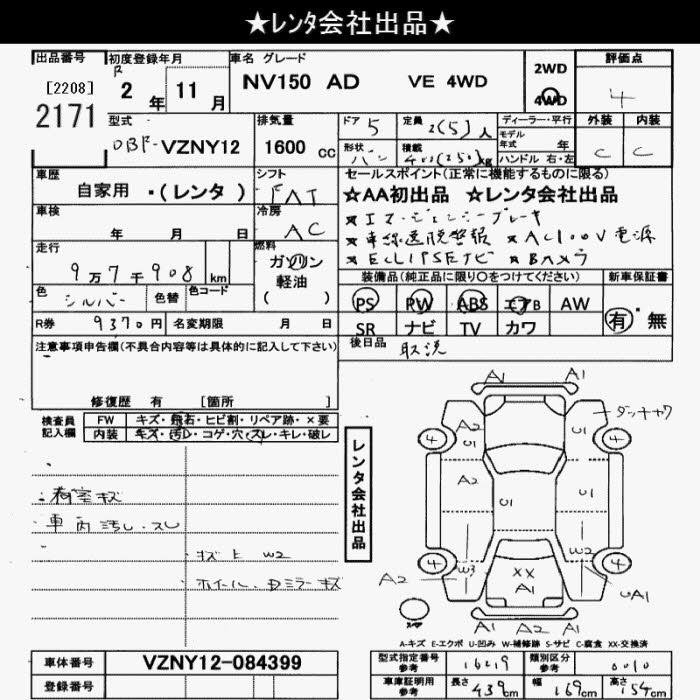 ★レンタ会社出品★
出品番号 初度登録年月 車名 グレード 評価点
[2208] R 2年 11月 NV150 AD VE 4WD 2WD 4WD 4
2171
型式 排気量 ドア 5 定員 2(5)人 ディーラー・平行 外装 内装
DBF-VZNY12 1600cc 形状 バン 積載 400(250)kg モデル年式 年 C C
ハンドル 右・左
車歴 シフト セールスポイント(正常に機能するものに限る)
自家用 ・(レンタ) FAT ★AA初出品 ★レンタ会社出品
車検 年 月 日 冷房 AC ★エマージェンシーブレーキ
★車線逸脱警報 ★AC100V電源
走行 9万7千908km 燃料 ガソリン 軽油 ( ) ★ECLIPSEナビ ★Bカメラ
色 シルバー 色替 色コード 装備品(純正品に限り○をつけてください) 新車保証書
PS PW ABS エアB AW 有・無
R券 9370円 名変期限 月 日 SR ナビ TV カワ
注意事項申告欄(不具合内容等は具体的に記入して下さい) 後日品 取説
修復歴 有 [箇所 ]
検査員記入欄 FW キズ・飛石・ヒビ割・リペア跡・×要
内装 キズ・汚れ・コゲ・穴・スレ・キレ・破レ
・荷室キズ
・車内汚れ・スレ
・キズ凹 W2
・ホイール・Dミラーキズ
レンタ会社出品
A1 A1
A2 U1 ダッシュキワ
4 4
A2 U1 U1
W3 W2
4 4
A2 XX A1 UA1
スペア
A1 A2 A1
A-キズ E-エクボ U-凹み W-補修跡 S-サビ C-腐食 XX-交換済
車体番号 VZNY12-084399 型式指定番号 参考 16219 類別区分 参考 0010
登録番号 車庫証明用 参考 長さ 439cm 幅 169cm 高さ 54cm